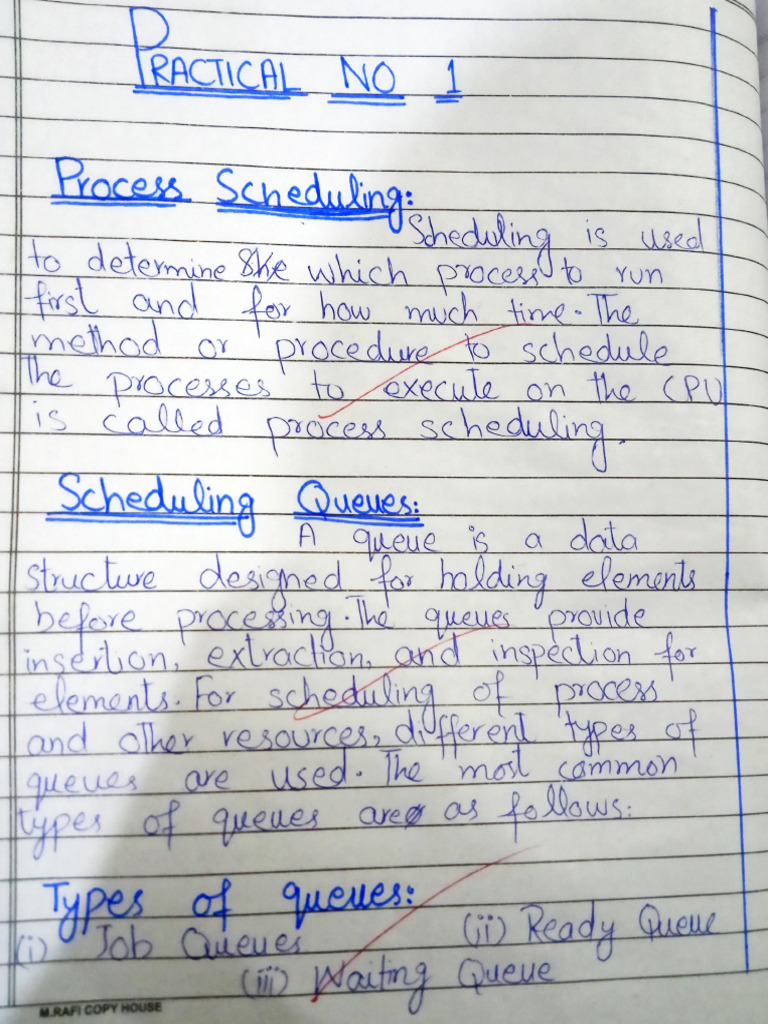 PRACTICAL NO 1
Process Scheduling:
Scheduling is used
to determine which process to run
first and for how much time. The
method or procedure to schedule
the processes to execute on the CPU
is called process scheduling.
Scheduling Queues:
A queue is a data
structure designed for holding elements
before processing. The queues provide
insertion, extraction, and inspection for
elements. For scheduling of process
and other resources, different types of
queues are used. The most common
types of queues are as follows:
Types of queues:
(i) Job Queues (ii) Ready Queue
(iii) Waiting Queue
M.RAFI COPY HOUSE